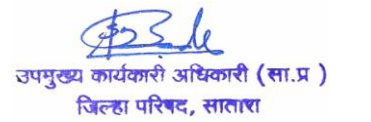 उपमुख्य कार्यकारी अधिकारी (सा.प्र )
जिल्हा परिषद, सातारा